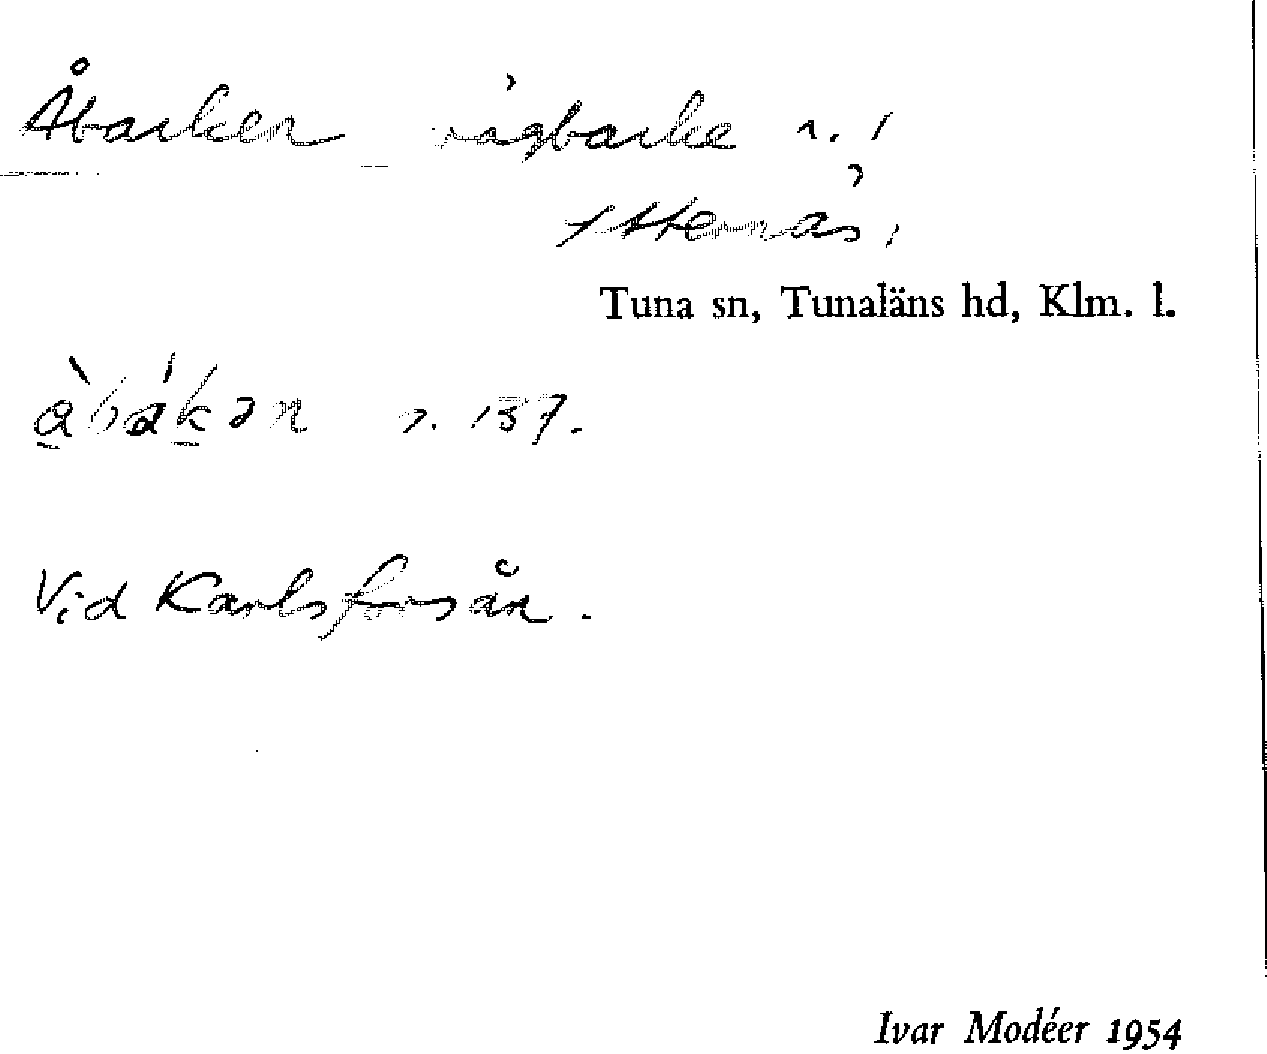 Åbacken vägbacke n. /
Ytternäs,
Tuna sn, Tunaläns hd, Klm. l.
n. 157.
Vid Karlsforsån.
Ivar Modéer 1954